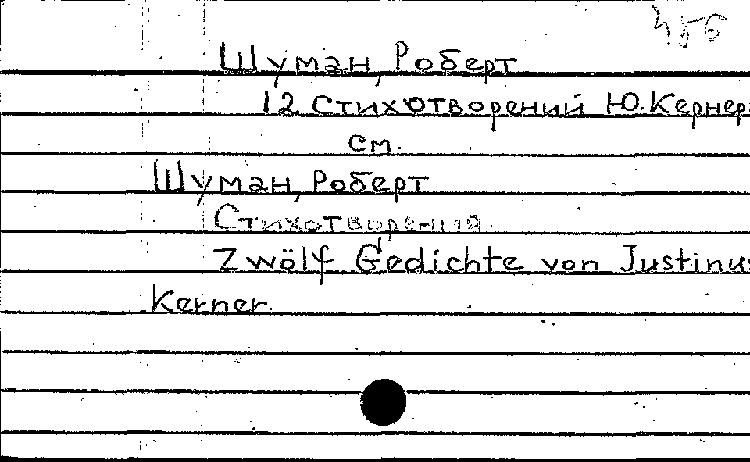 456
Шуман, Роберт
12 стихотворений Ю. Кернер
см.
Шуман, Роберт
Стихотворения
Zwölf Gedichte von Justinus
Kerner.